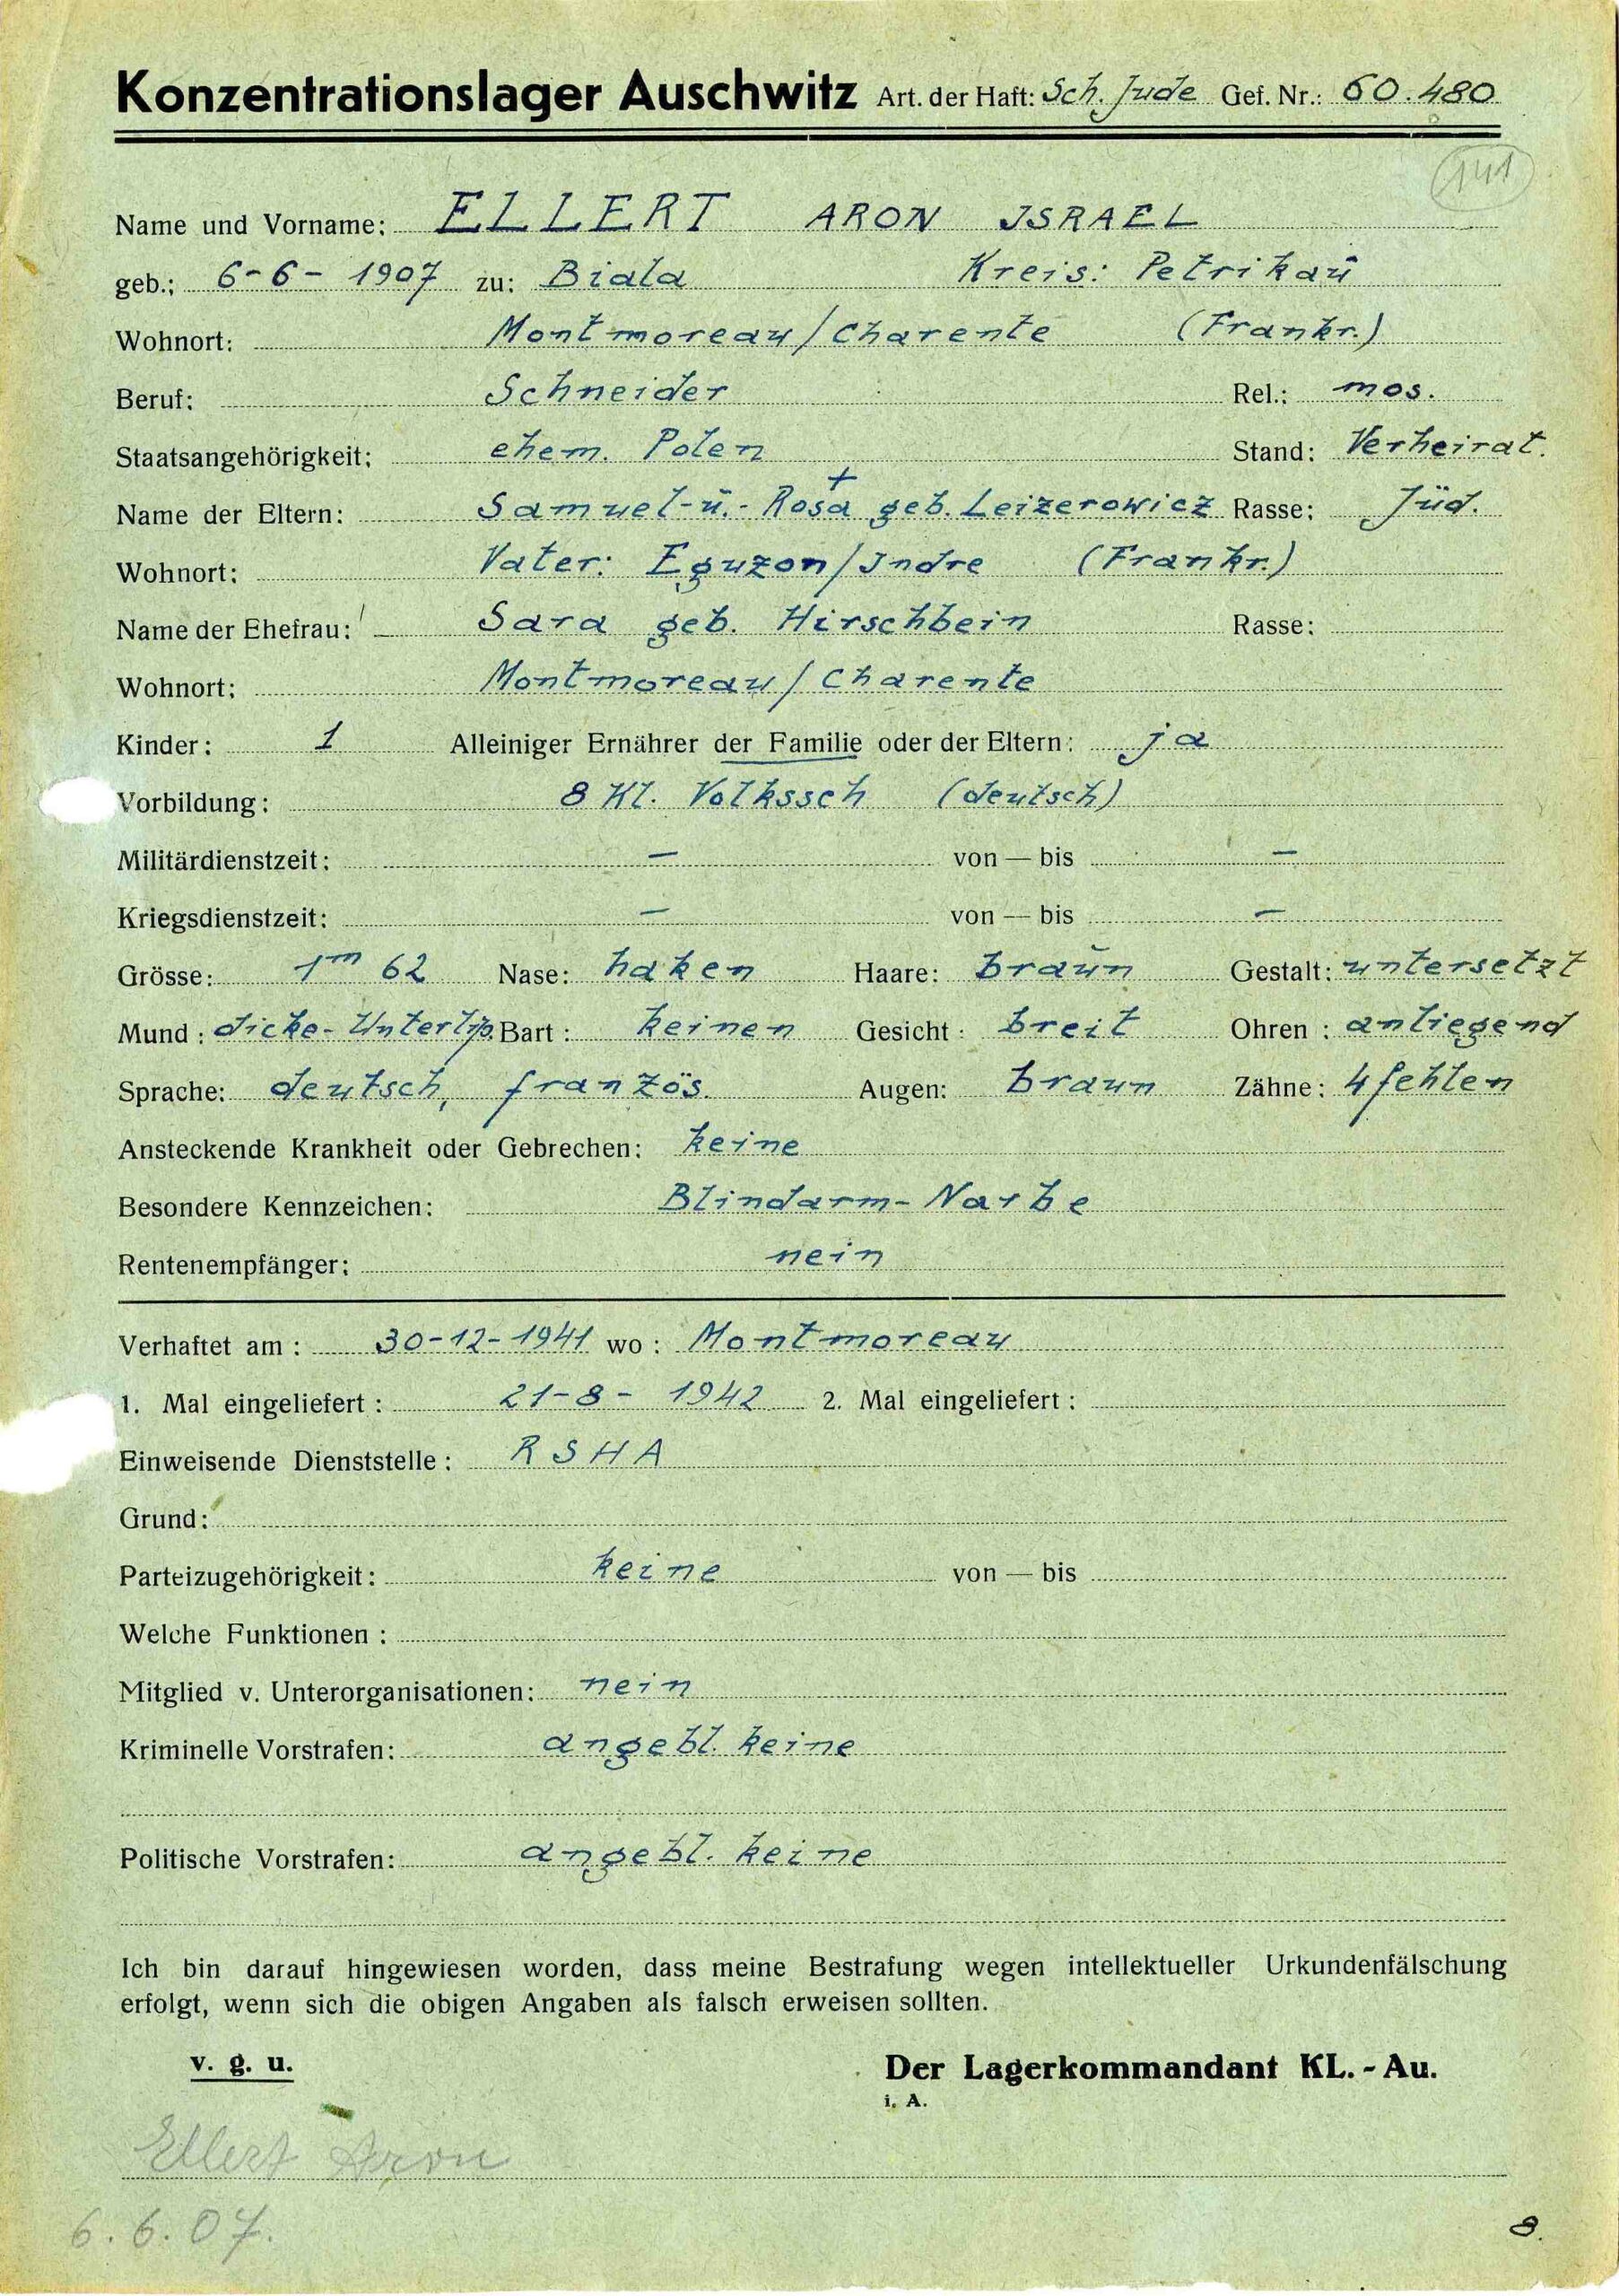 Konzentrationslager Auschwitz Art. der Haft: Sch. Jude Gef. Nr.: 60.480
141
Name und Vorname: ELLERT ARON ISRAEL
geb.: 6-6- 1907 zu: Biala Kreis: Petrikau
Wohnort: Montmoreau/Charente (Frankr.)
Beruf: Schneider Rel.: mos.
Staatsangehörigkeit: ehem. Polen Stand: Verheirat.
Name der Eltern: Samuel-u.- Rosa + geb. Leizerowicz Rasse: Jüd.
Wohnort: Vater: Eguzon/Indre (Frankr.)
Name der Ehefrau: Sara geb. Hirschbein Rasse:
Wohnort: Montmoreau/Charente
Kinder: 1 Alleiniger Ernährer der Familie oder der Eltern: ja
Vorbildung: 8 Kl. Volkssch (deutsch)
Militärdienstzeit: — von — bis —
Kriegsdienstzeit: — von — bis —
Grösse: 1m 62 Nase: haken Haare: braun Gestalt: untersetzt
Mund: dicke-Unterlip. Bart: keinen Gesicht: breit Ohren: anliegend
Sprache: deutsch, französ. Augen: braun Zähne: 4 fehlen
Ansteckende Krankheit oder Gebrechen: keine
Besondere Kennzeichen: Blindarm-Narbe
Rentenempfänger: nein
Verhaftet am: 30-12-1941 wo: Montmoreau
1. Mal eingeliefert: 21-8- 1942 2. Mal eingeliefert:
Einweisende Dienststelle: RSHA
Grund:
Parteizugehörigkeit: keine von — bis
Welche Funktionen:
Mitglied v. Unterorganisationen: nein
Kriminelle Vorstrafen: angebl. keine
Politische Vorstrafen: angebl. keine
Ich bin darauf hingewiesen worden, dass meine Bestrafung wegen intellektueller Urkundenfälschung
erfolgt, wenn sich die obigen Angaben als falsch erweisen sollten.
v. g. u. Der Lagerkommandant KL.-Au.
i. A.
Ellert Aron
6.6.07.
8.